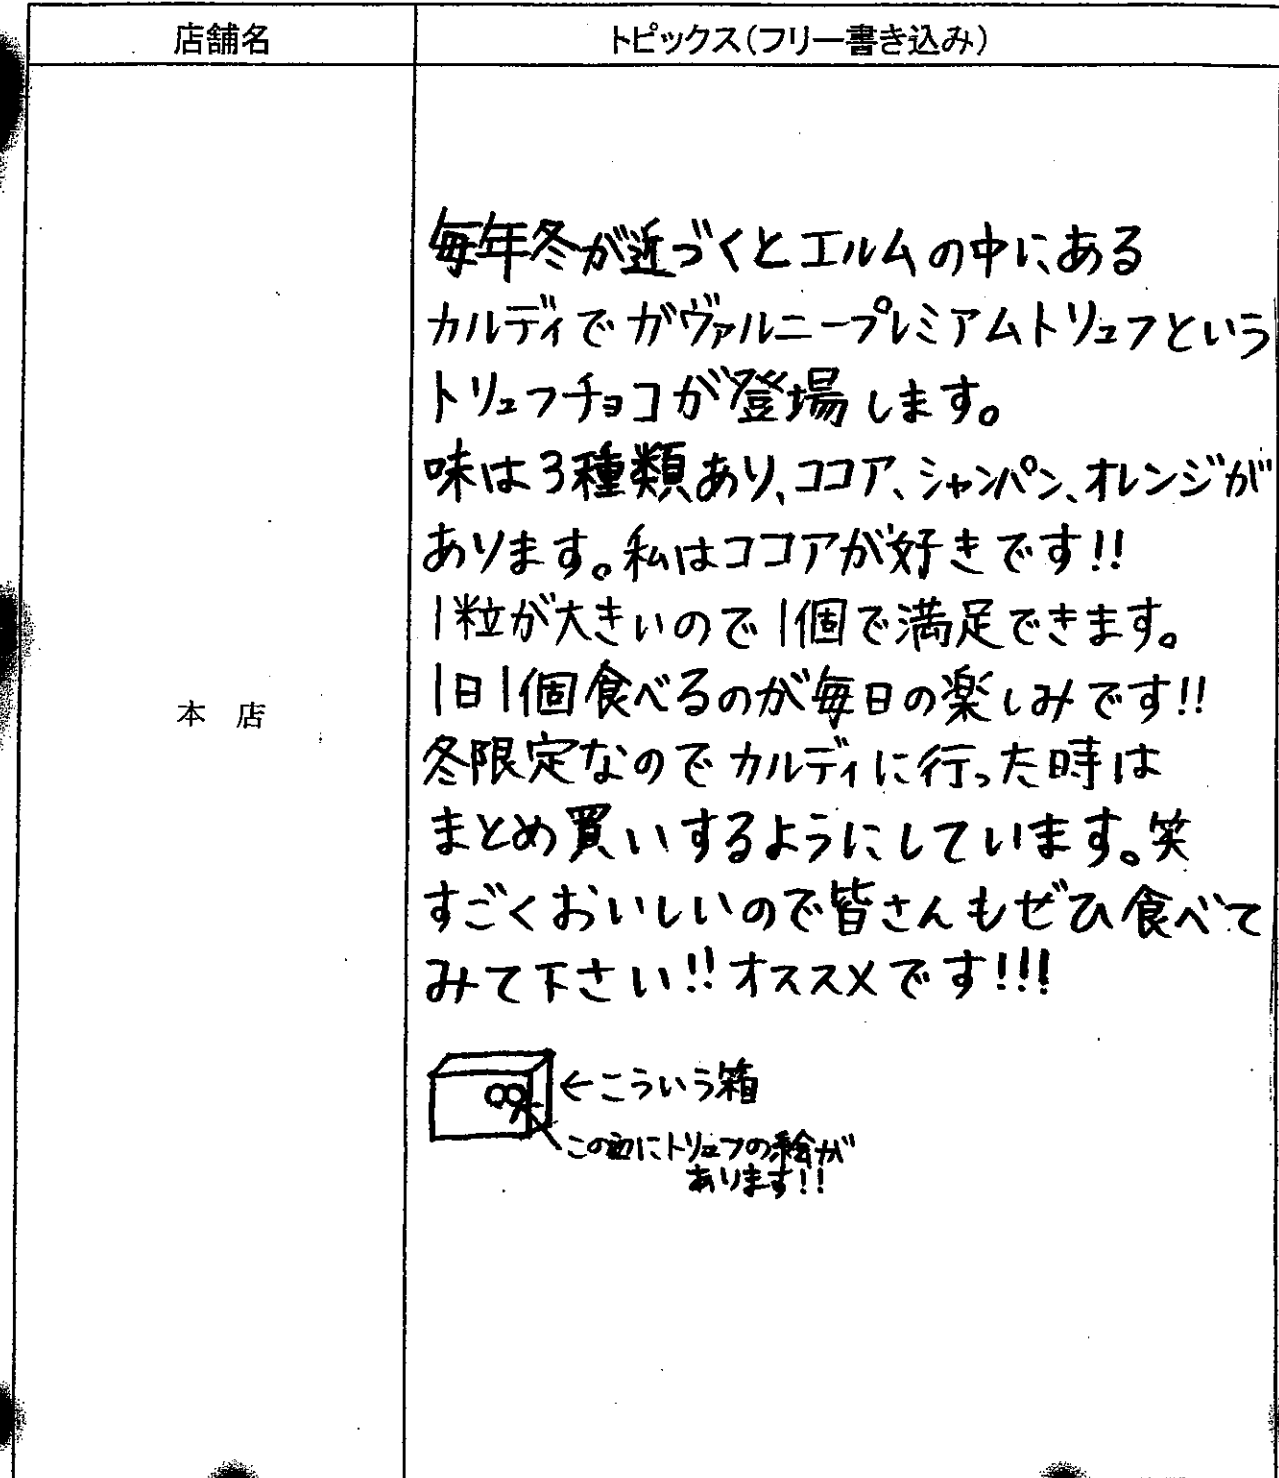 店舗名
トピックス(フリー書き込み)
毎年冬が近づくとエルムの中にある
カルディでガヴァルニープレミアムトリュフという
トリュフチョコが登場します。
味は3種類あり、ココア、シャンパン、オレンジが
あります。私はココアが好きです!!
1粒が大きいので1個で満足できます。
1日1個食べるのが毎日の楽しみです!!
本 店
冬限定なのでカルディに行った時は
まとめ買いするようにしています。笑
すごくおいしいので皆さんもぜひ食べて
みて下さい!!オススメです!!!
←こういう箱
この辺にトリュフの絵が
あります!!